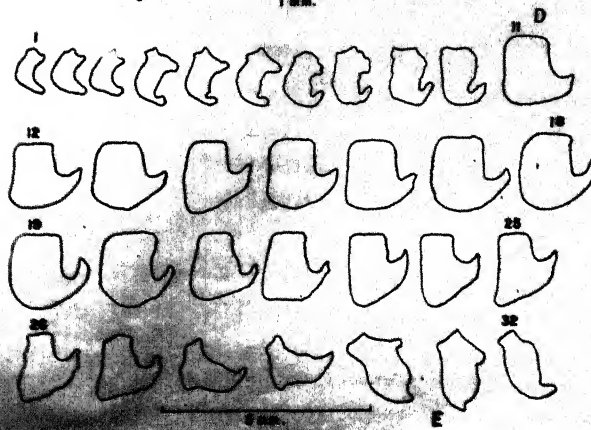 1 mm.
1 11 D
12 18
19 25
26 32
5 mm. E